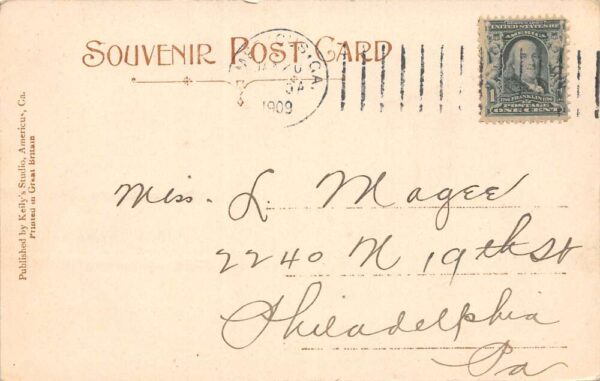 SOUVENIR POST CARD
AMERICUS, GA.
1909
UNITED STATES OF
AMERICA
1
FRANKLIN
POSTAGE
ONE CENT
Miss. L. Magee
2240 N 19th St
Philadelphia
Pa
Published by Kelly's Studio, Americus, Ga.
Printed in Great Britain